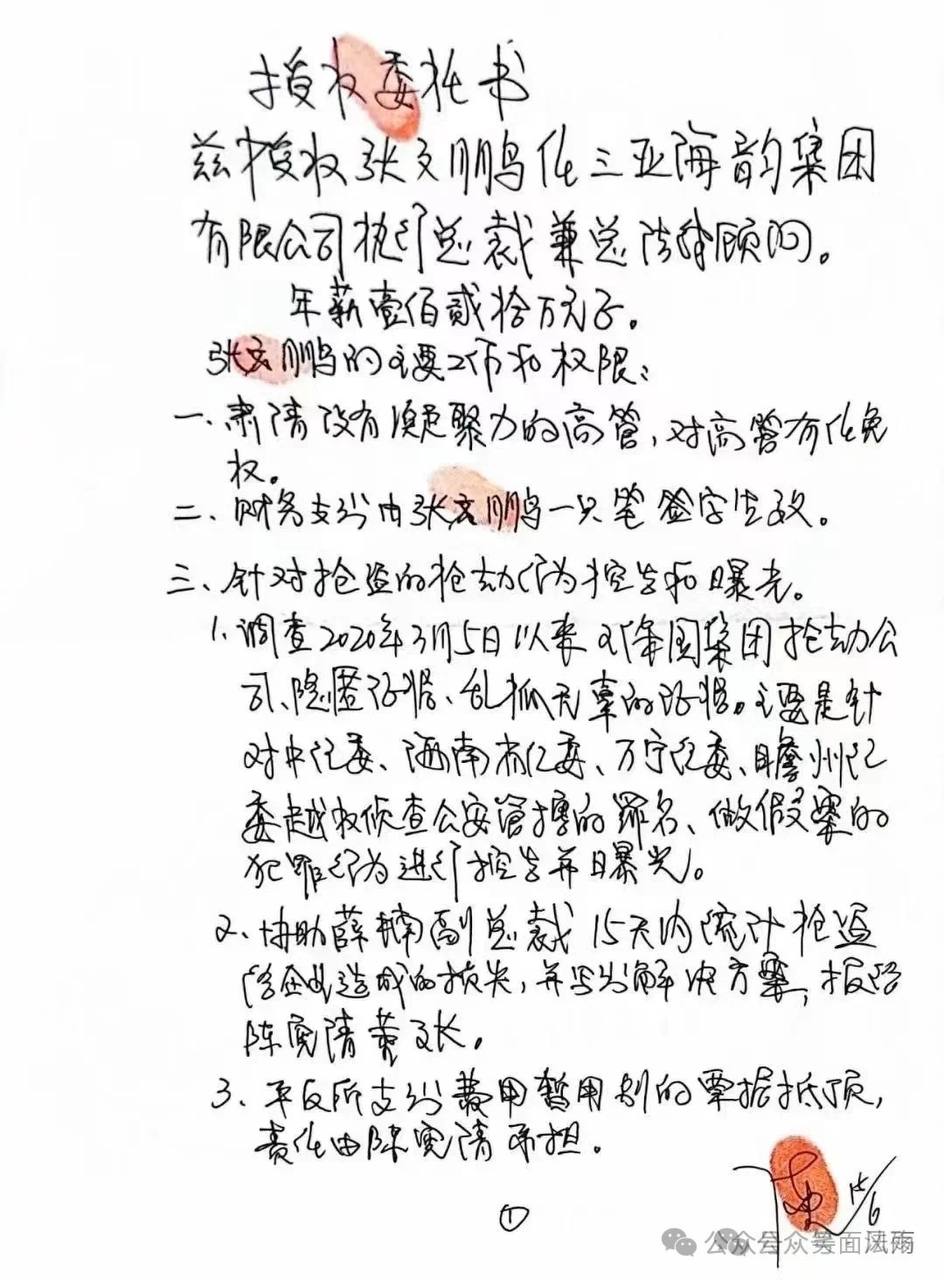 授权委托书
兹授权张文鹏任三亚海韵集团
有限公司执行总裁兼总法律顾问。
年薪壹佰贰拾万元正。
张文鹏的主要工作和权限:
一、肃清没有凝聚力的高管,对高管有任免
权。
二、财务支出由张文鹏一只笔签字生效。
三、针对抢盗的抢劫行为控告和曝光。
1、调查2020年3月5日以来对集团抢劫公
司、隐匿证据、乱抓无辜的证据。主要是针
对中纪委、海南省纪委、万宁纪委、儋州纪
委越权侦查公安管辖的罪名、做假案的
犯罪行为进行控告并曝光。
2、协助薛楠副总裁15天内统计抢盗
给企业造成的损失,并写出解决方案,报给
陈宪清董文长。
3、平反所支出费用暂用别的票据抵顶,
责任由陈宪清承担。
15/6
①
公众号 笑面风雨